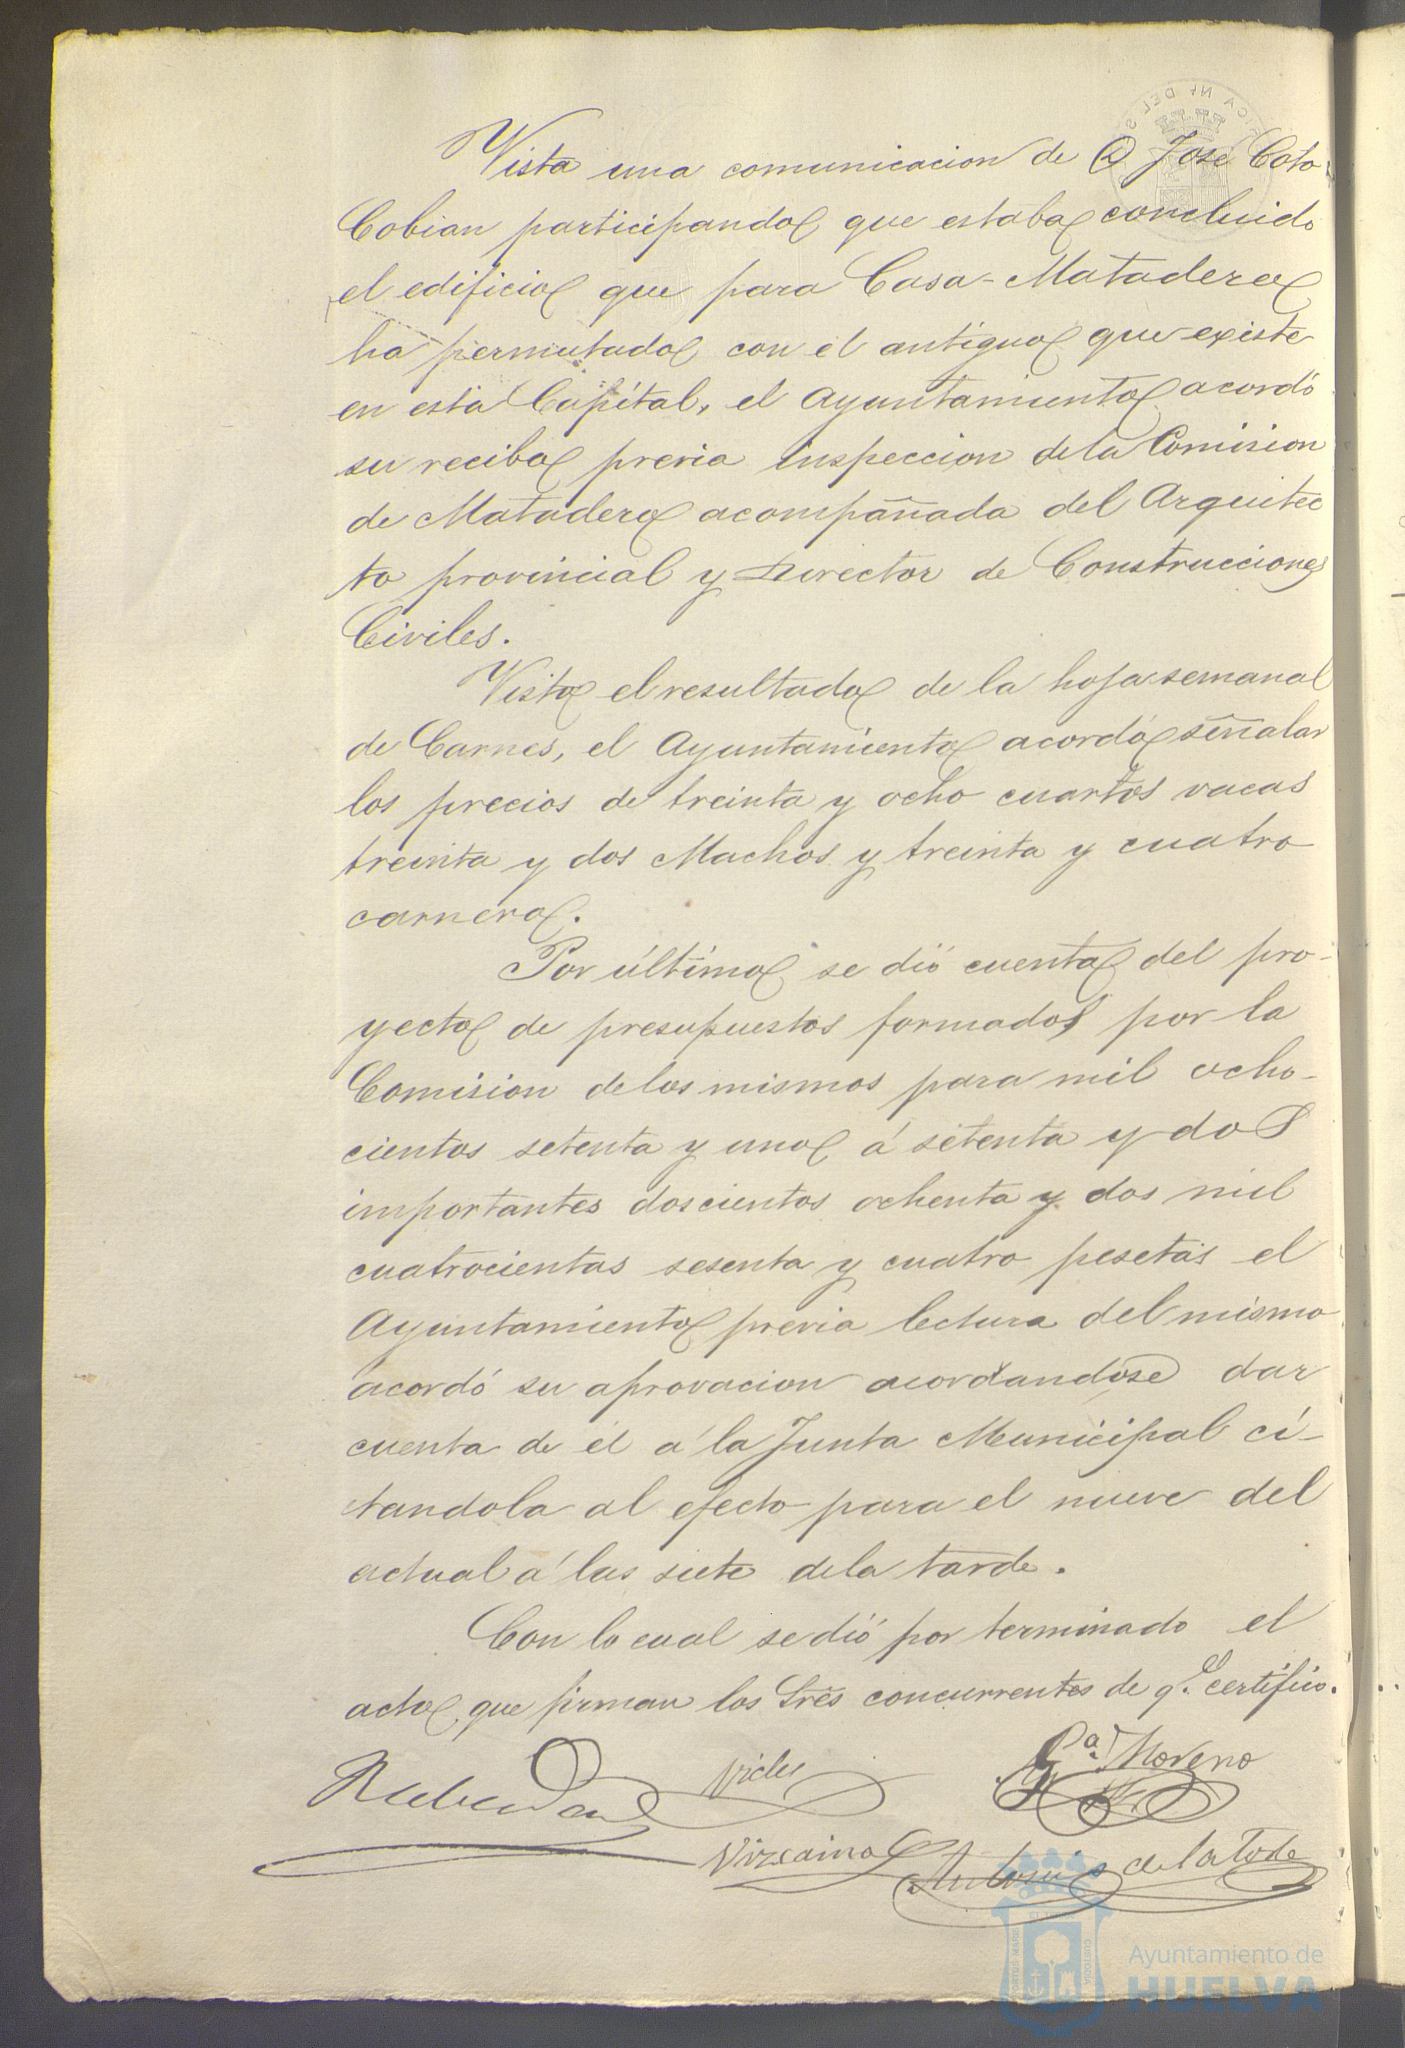 Vista una comunicacion de D José Coto
Cobian participando que estaba concluido
el edificio que para Casa-Matadero
ha permutado con el antiguo que existe
en esta Capital, el Ayuntamiento acordó
su recibo previa inspeccion de la Comision
de Matadero acompañada del Arquitec
to provincial y Director de Construcciones
Civiles.
Visto el resultado de la hoja semanal
de Carnes, el Ayuntamiento acordó señalar
los precios de treinta y ocho cuartos vacas
treinta y dos Machos y treinta y cuatro
carnero.
Por último se dió cuenta del pro-
yecto de presupuestos formados por la
Comision de los mismos para mil ocho-
cientos setenta y uno á setenta y dos
importantes doscientos ochenta y dos mil
cuatrocientas sesenta y cuatro pesetas el
Ayuntamiento previa lectura del mismo
acordó su aprovacion acordandose dar
cuenta de él á la Junta Municipal ci-
tandola al efecto para el nueve del
actual á las siete de la tarde.
Con lo cual se dió por terminado el
acto que firman los Sres concurrentes de q.e certifico.
Vides
Ga. Moreno
Vizcaino
Antonio de la Torre
Ayuntamiento de
HUELVA